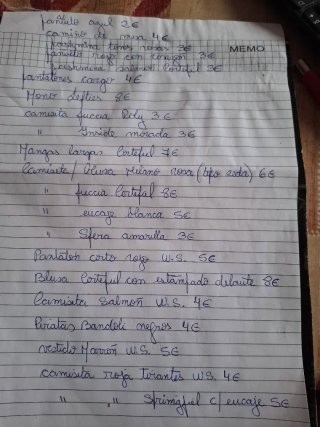 pañuelo azul 2€
camino de mesa 4€
pashmina tonos rosas 3€
MEMO
pañuelo rojo con corazon 3€
pashmina salmon Cortefiel 3€
pantalones cargo 4€
Mono defties 8€
camiseta fuccia Poly 3€
" Inside morada 3€
Mangas largas Cortefiel 7€
Camiseta / blusa Milano rosa (tipo seda) 6€
" fuccia Cortefiel 8€
" encaje blanca 5€
" Sfera amarilla 3€
Pantalon corto rojo W.S. 5€
Blusa Cortefiel con estampado delante 8€
Camiseta Salmon W.S. 4€
Piratas Bandoli negros 4€
vestido Marron W.S. 5€
camiseta roja tirantes W.S. 4€
" " Springfiel c/ encaje 5€